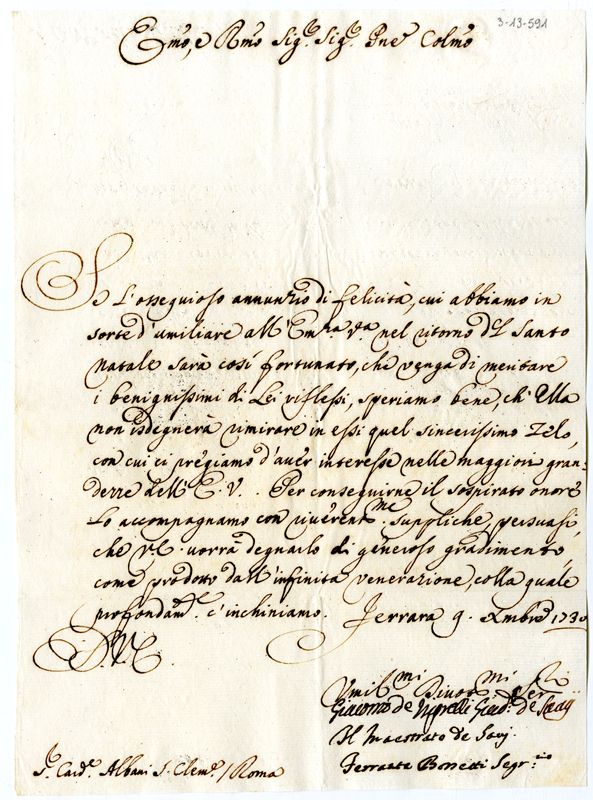 3-13-591
Em̃o, e Rm̃o Sig.r Sig.r Pne Colmo
Se l'ossequioso annunzio di felicità, cui abbiamo in
sorte d'umiliare all'Em.za V.ra nel ritorno del Santo
Natale sarà così fortunato, che venga di meritare
i benignissimi di Lei riflessi, speriamo bene, ch'Ella
non isdegnerà rimirare in essi quel sincerissimo Zelo,
con cui ci pregiamo d'aver interesse nelle maggiori gran-
dezze dell'E. V. Per conseguirne il sospirato onore
lo accompagnamo con riverent.me suppliche, persuasi,
che vorrà degnarlo di generoso gradimento,
come prodotto dall'infinita venerazione, colla quale
profondam.e c'inchiniamo. Ferrara 9. Xmbre 1730
Umil.mi Divot.mi Ser.ri
Giacomo de Giud.e de Savij
Il Maestrato de Savj.
Ferrante Bonetti Segr.rio
S.r Card.e Albani S. Clem.e / Roma